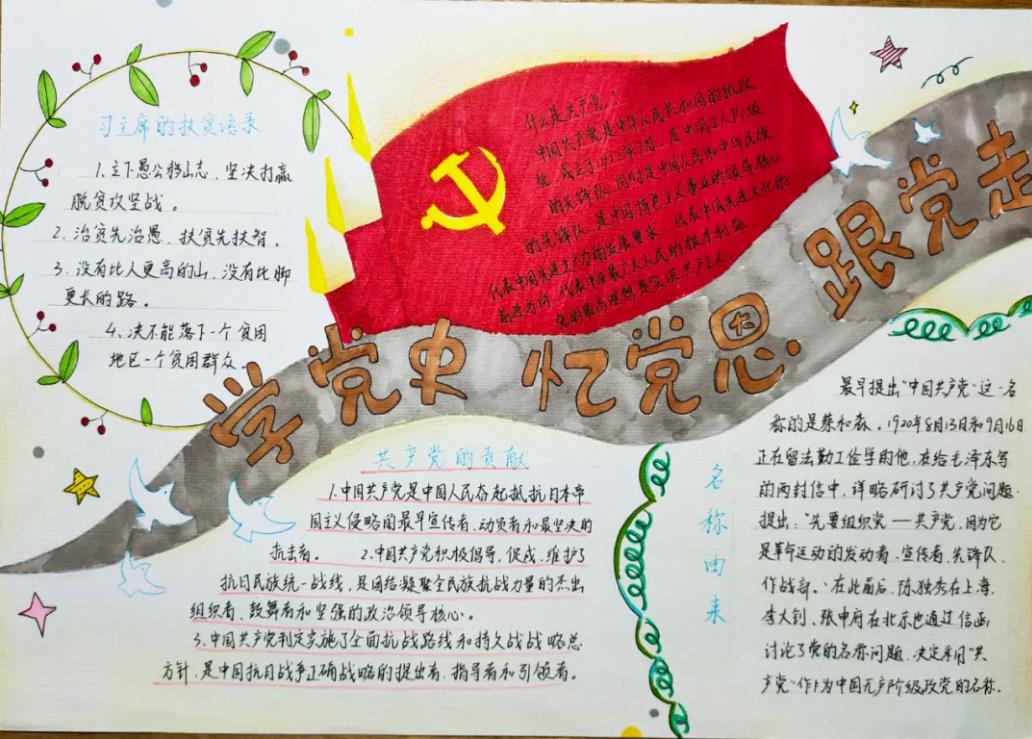 习主席的扶贫语录
1.立下愚公移山志，坚决打赢
脱贫攻坚战。
2.治贫先治愚，扶贫先扶智。
3.没有比人更高的山，没有比脚
更长的路。
4.决不能落下一个贫困
地区一个贫困群众。
什么是共产党？
中国共产党是中华人民共和国的执政
党，成立于1921年7月，是中国工人阶级
的先锋队，同时是中国人民和中华民族
的先锋队，是中国特色主义事业的领导核心
代表中国先进生产力的发展要求，代表中国先进文化的
前进方向，代表中国最广大人民的根本利益
党的最高理想是实现共产主义。
学党史 忆党恩 跟党走
共产党的贡献
1.中国共产党是中国人民奋起抵抗日本帝
国主义侵略的最早宣传者、动员者和最坚决的
抗击者。 2.中国共产党积极倡导、促成、维护了
抗日民族统一战线，是团结凝聚全民族抗战力量的杰出
组织者、鼓舞者和坚强的政治领导核心。
3.中国共产党制定实施了全面抗战路线和持久战战略总
方针，是中国抗日战争正确战略的提出者、指导者和引领者。
名称由来
最早提出“中国共产党”这一名
称的是蔡和森。1920年8月13日和9月16日
正在留法勤工俭学的他，在给毛泽东写
的两封信中，详略研讨了共产党问题，
提出：“先要组织党——共产党，因为它
是革命运动的发动者、宣传者、先锋队、
作战部。”在此前后，陈独秀在上海，
李大钊、张申府在北京也通过信函
讨论了党的名称问题，决定采用“共
产党”作为中国无产阶级政党的名称。